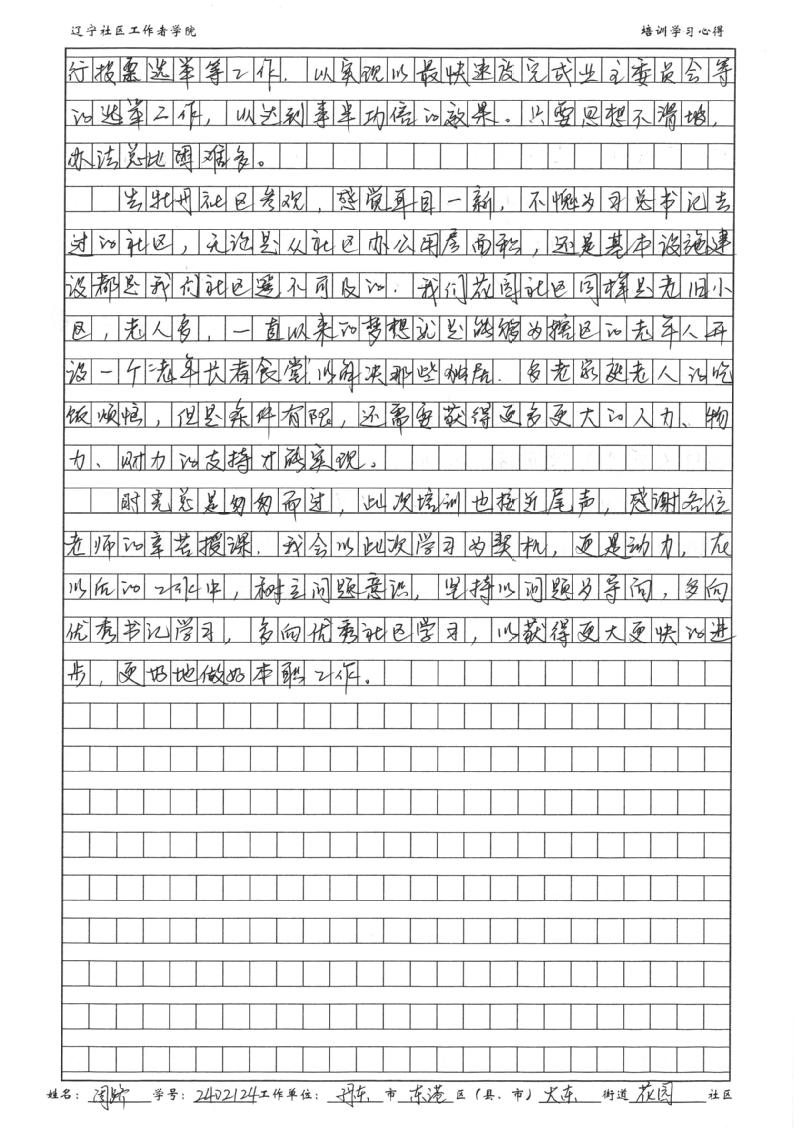 辽宁社区工作者学院 培训学习心得
行投票选举等工作，以实现以最快速度完成业主委员会等
的选举工作，以达到事半功倍的效果。只要思想不滑坡，
办法总比困难多。
去牡丹社区参观，感觉耳目一新，不愧为习总书记去
过的社区，无论是从社区办公用房面积，还是基本设施建
设都是我们社区遥不可及的。我们花园社区同样是老旧小
区，老人多，一直以来的梦想就是能够为辖区的老年人开
设一个老年长者食堂，以解决那些独居、多老家庭老人的吃
饭烦恼，但是条件有限，还需要获得更多更大的人力、物
力、财力的支持才能实现。
时光总是匆匆而过，此次培训也接近尾声，感谢各位
老师的辛苦授课，我会以此次学习为契机，更是动力，在
以后的工作中，树立问题意识，坚持以问题为导向，多向
优秀书记学习，多向优秀社区学习，以获得更大更快的进
步，更好地做好本职工作。
姓名： 学号：2402124 工作单位：丹东 市 东港 区（县、市） 大东 街道 花园 社区